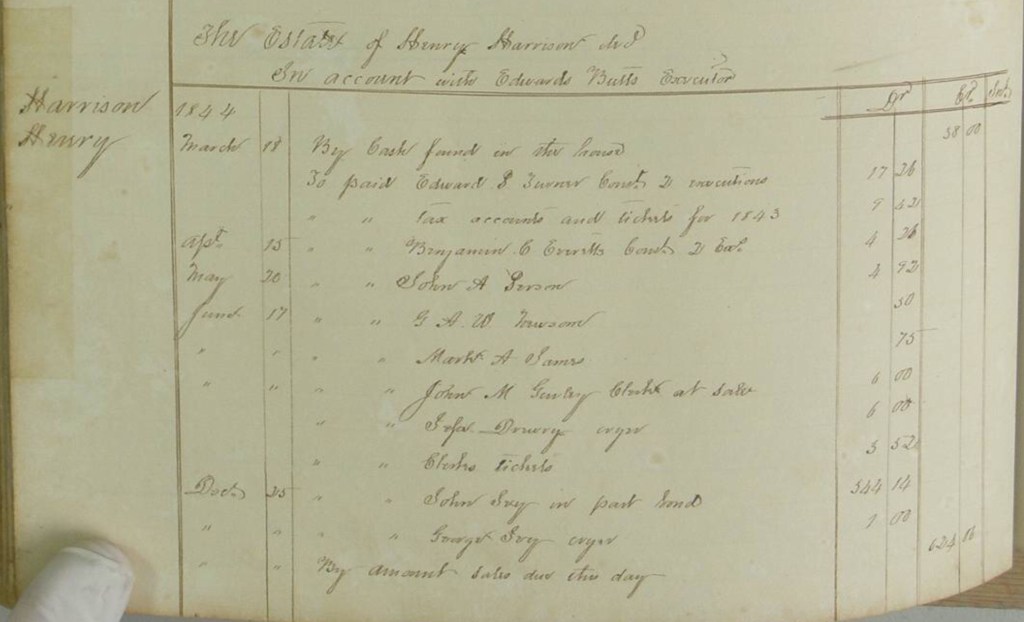 The Estate of Henry Harrison decd
In account with Edwards Butts Executor
Dr Cr
Harrison
Henry
1844
March 18 By Cash found in the house 38 00
To paid Edward S Turner Const. 2 executions 17 26
" " tax accounts and tickets for 1843 9 42
Apl. 15 " " Benjamin C Everetts Const. 2 Exl. 4 26
May 20 " " John A Person 4 92
June 17 " " G A W Newsom 50
" " " " Mark A James 75
" " " " John M Gurley Clerk at sale 6 00
" " Drewry cryer 6 00
" " Clerks tickets 3 52
Dect. 25 " " John Ivy in part bond 344 14
" " " " George Ivy cryer 7 00
" " By amount sales due this day